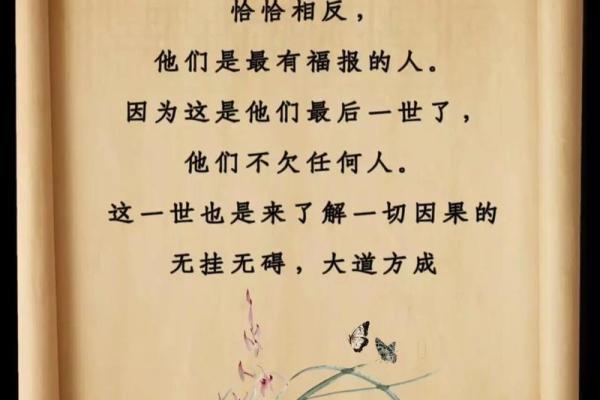 恰恰相反，
他们是最有福报的人。
因为这是他们最后一世了，
他们不欠任何人。
这一世也是来了解一切因果的
无挂无碍，大道方成